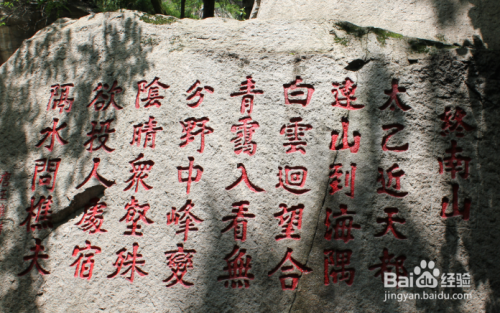 終南山
太乙近天都
連山到海隅
白雲迴望合
青靄入看無
分野中峰變
陰晴衆壑殊
欲投人處宿
隔水問樵夫
Baidu 经验
jingyan.baidu.com